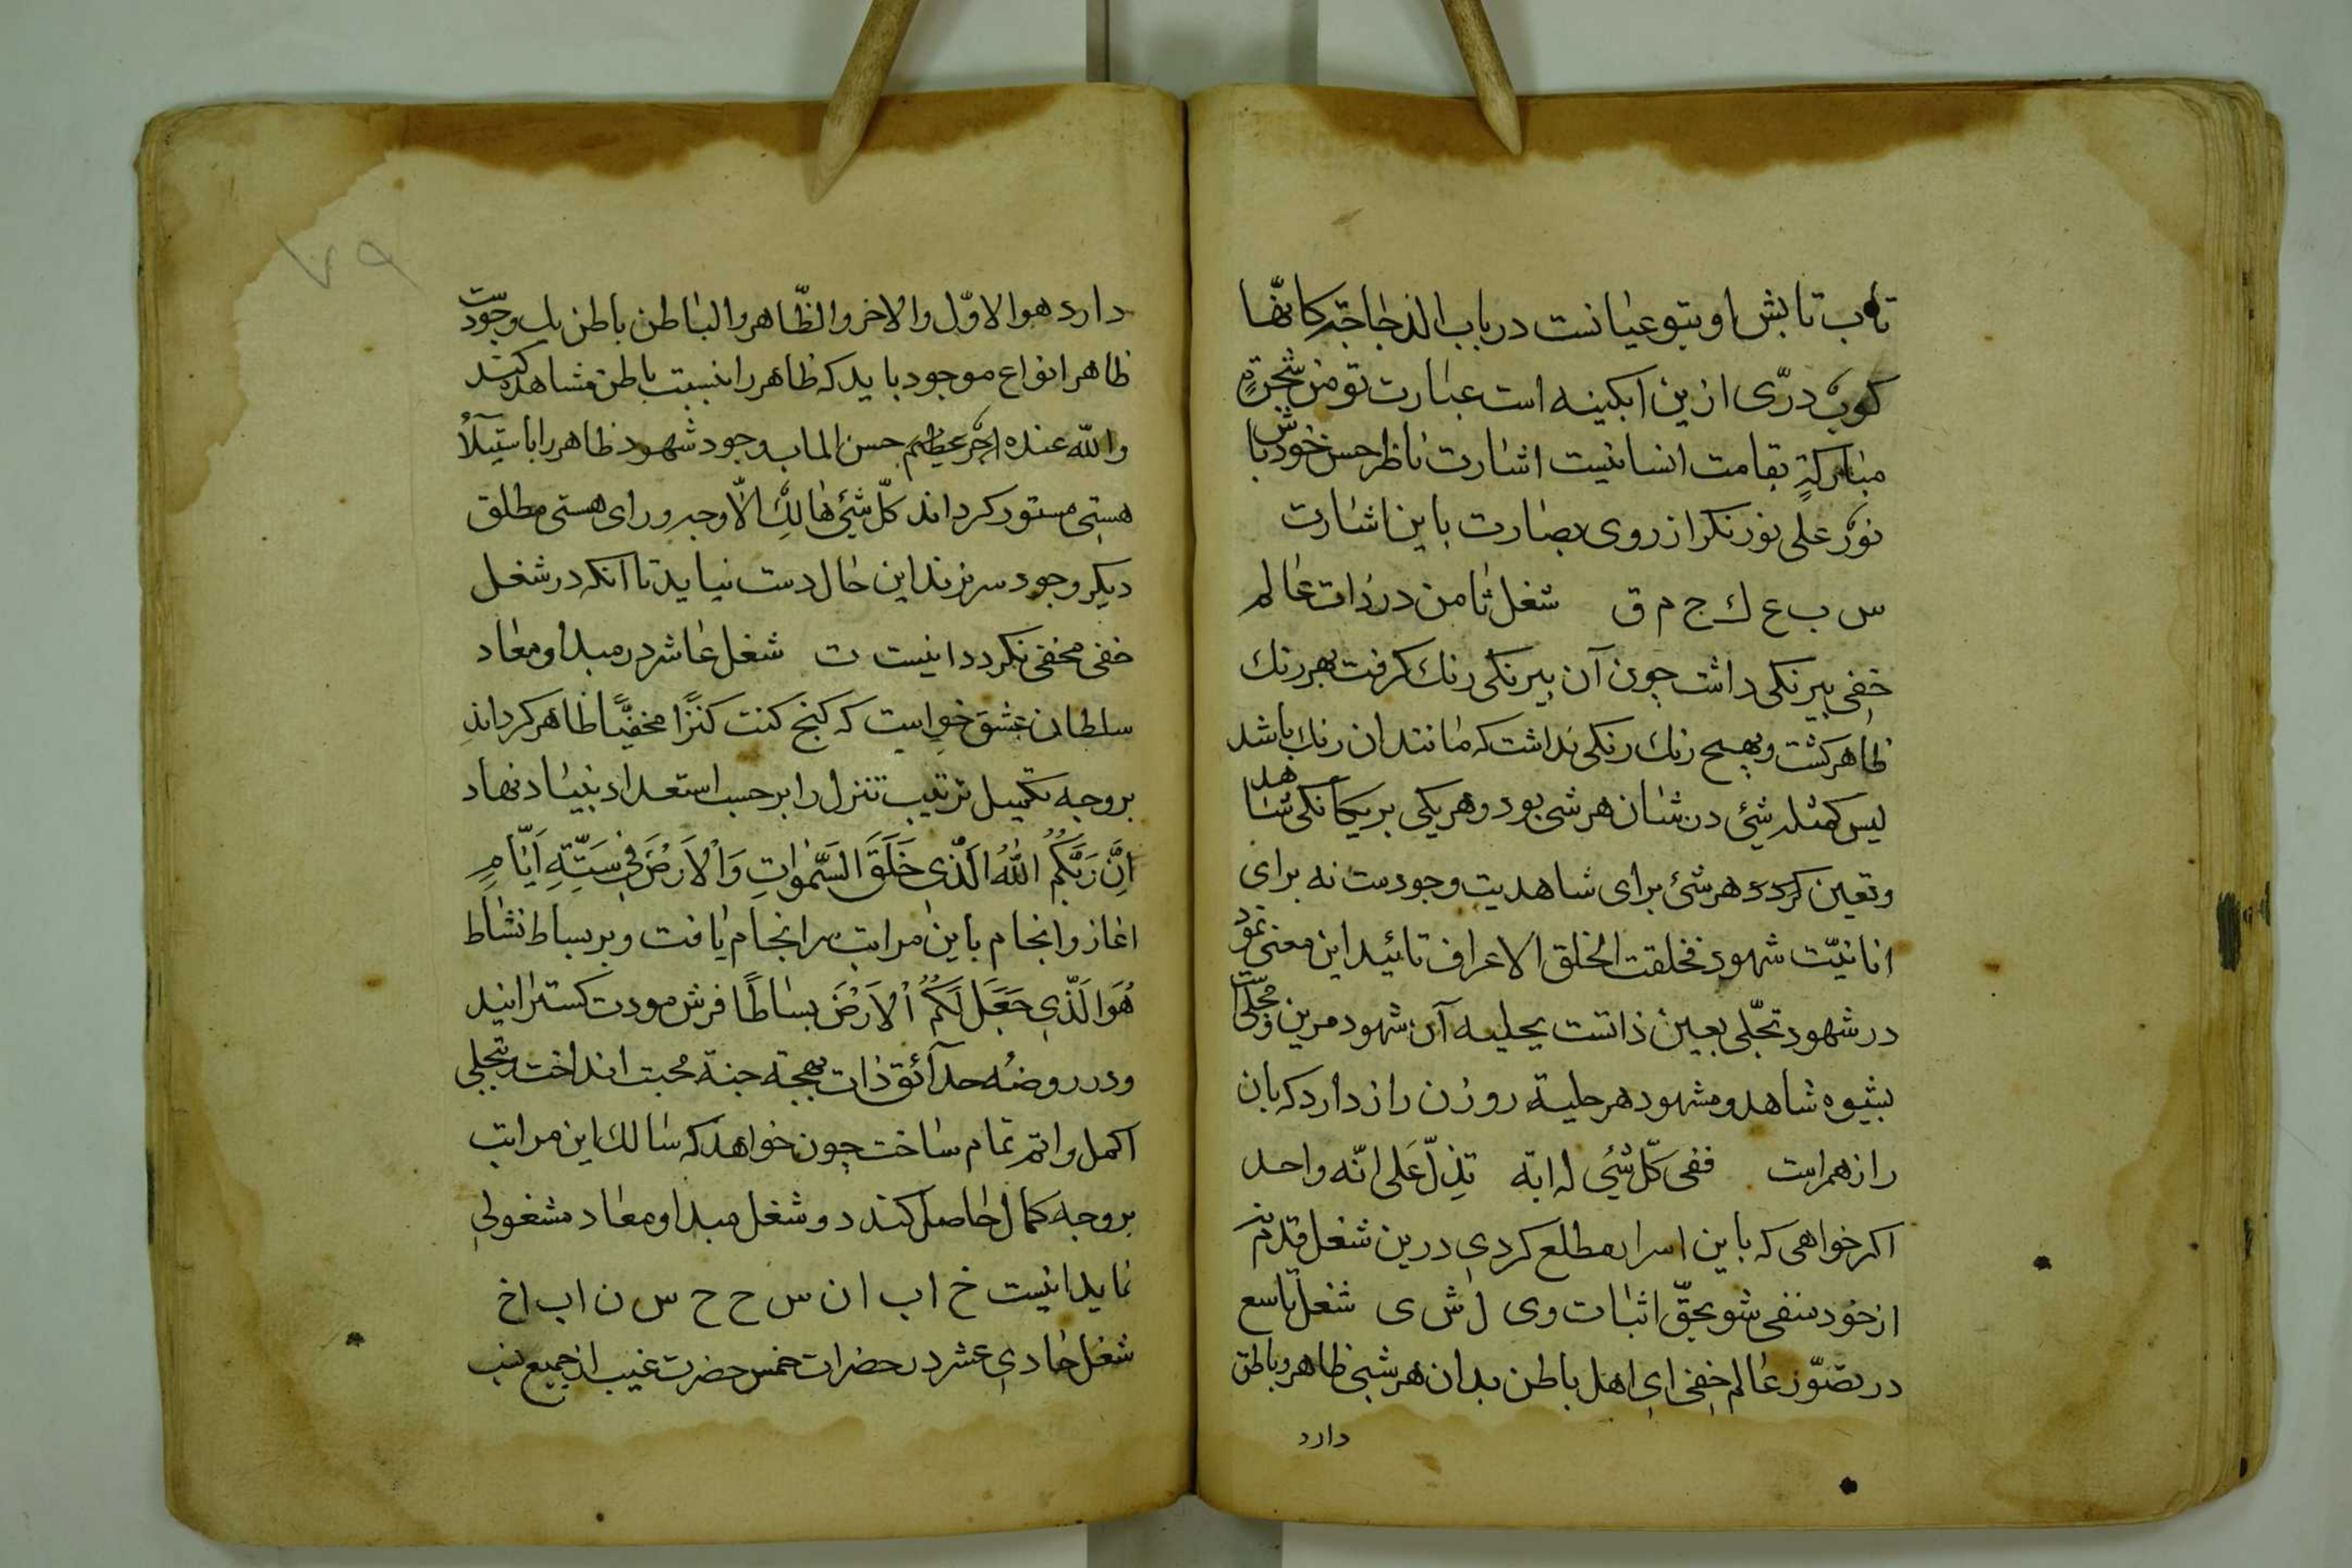 تاب تابش او بتو عیانست دریاب الزجاجة کانّها
کوکب درّی ازین ابکینه است عبارت تو من شجرةٍ
مبارکةٍ بقامت انسانیست اشارت ناظر حسن خود باش
نورٌ علی نور نکر از روی بصارت باین اشارت
س ب ع ک ج م ق شغل ثامن در ذات عالم
خفی بیرنکی داشت چون آن بیرنکی رنک کرفت بهر رنک
ظاهر کشت و بهیچ رنک رنکی نداشت که مانند ان رنک باشد
لیس کمثله شئ در شان هر شی بود و هر یکی بر یکانکی شاهد
و تعین کردد هر شئ برای شاهدیت وجودست نه برای
انانیّت شهود فخلقت الخلق الاعراف تائید این معنی نمود
در شهود تجّلی بعین ذاتست یحلیه آن شهود مرین و مجلّی
بشیوه شاهد و مشهود هر حلیة روزن راز دارد که بان
راز همراست ففی کلّ شئی له ایة تدلّ عَلی انّه واحد
اکر خواهی که باین اسرار مطلع کردی درین شغل قدم نه
از خود منفی شو بحقّ اثبات وی ل ش ی شغل تاسع
در تصوّر عالم خفی ای اهل باطن بدان هر شیئ ظاهر و باطن
دارد
۷۹
دارد هو الاوّل والاخر والظّاهر والباطن باطن یک وجودست
ظاهر انواع موجود باید که ظاهر را بنسبت باطن مشاهده کند
والله عنده اجرٌ عظیم حسن الماب وجود شهود ظاهر را باستیلاء
هستی مستور کرداند کلّ شئی هالِکٌ الّا وجهه ورای هستی مطلق
دیکر وجود سر نزند این حال دست نیاید تا آنکه در شغل
خفی مخفی نکردد اینست ت شغل عاشر در مبدا و معاد
سلطان عشق خواست که کنج کنت کنزًا مخفیًّا ظاهر کرداند
بروجه تکمیل ترتیب تنزل را بر حسب استعداد بنیاد نهاد
اِنَّ رَبَّکُمُ اللهُ الَّذِی خَلَقَ السَّمٰوٰاتِ وَالْاَرْضَ فِی سِتَّةِ اَیّٰامٍ
اغاز و انجام باین مراتب سرانجام یافت و بر بساط نشاط
هُوَ الَّذِی جَعَلَ لَکُمُ الْاَرْضَ بِسٰاطًا فرش مودت کسترانید
و در روضهٔ حدآئق ذات بهجة جنة محبت انداخت بتجلی
اکمل و اتم تمام ساخت چون خواهد که سالک این مراتب
بروجه کمال حاصل کند در شغل مبدا و معاد مشغولی
نماید اینست خ ا ب ا ن س ح ح س ن ا ب ا خ
شغل حادی عشر در حضرات خمس حضرت غیب از جمیع نسب